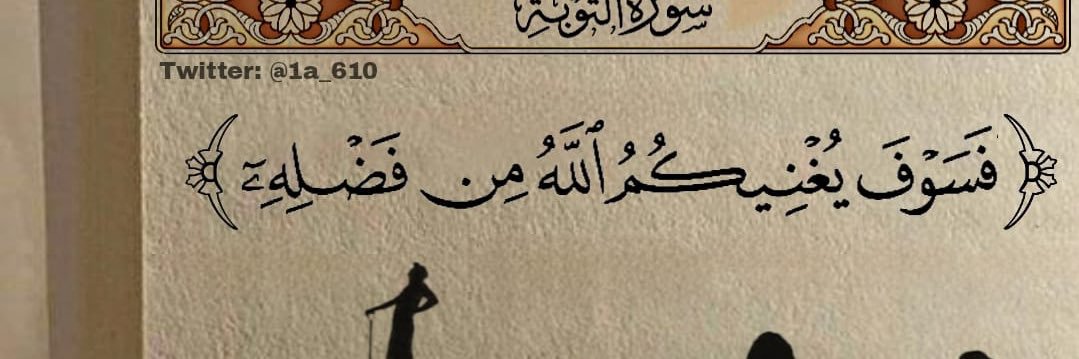 سُورَةُ التَّوْبَةِ
Twitter: @1a_610
﴿ فَسَوْفَ يُغْنِيكُمُ ٱللَّهُ مِن فَضْلِهِۦٓ ﴾